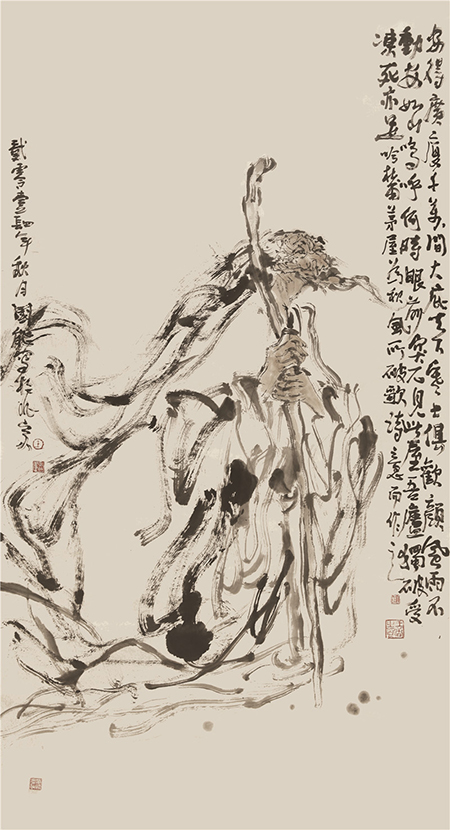 安得廣廈千萬間大庇天下寒士俱歡顏風雨不
動安如山嗚呼何時眼前突兀見此屋吾廬獨破受
凍死亦足吟杜甫茅屋為秋風所破歌詩意而作
貳零壹肆年秋月國能寫於